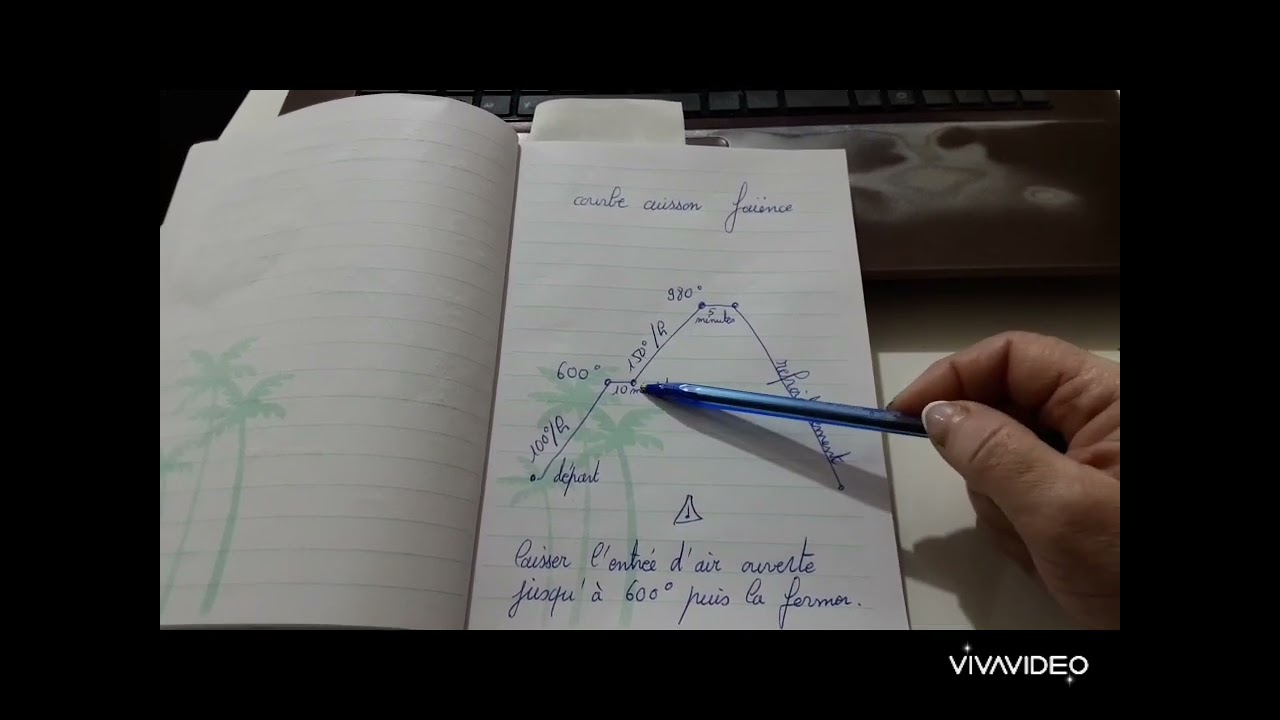 courbe cuisson faïence
980°
5
minutes
150°/h
600°
10
100°/h
départ
laisser l'entrée d'air ouverte
jusqu'à 600° puis la fermer.
VIVAVIDEO